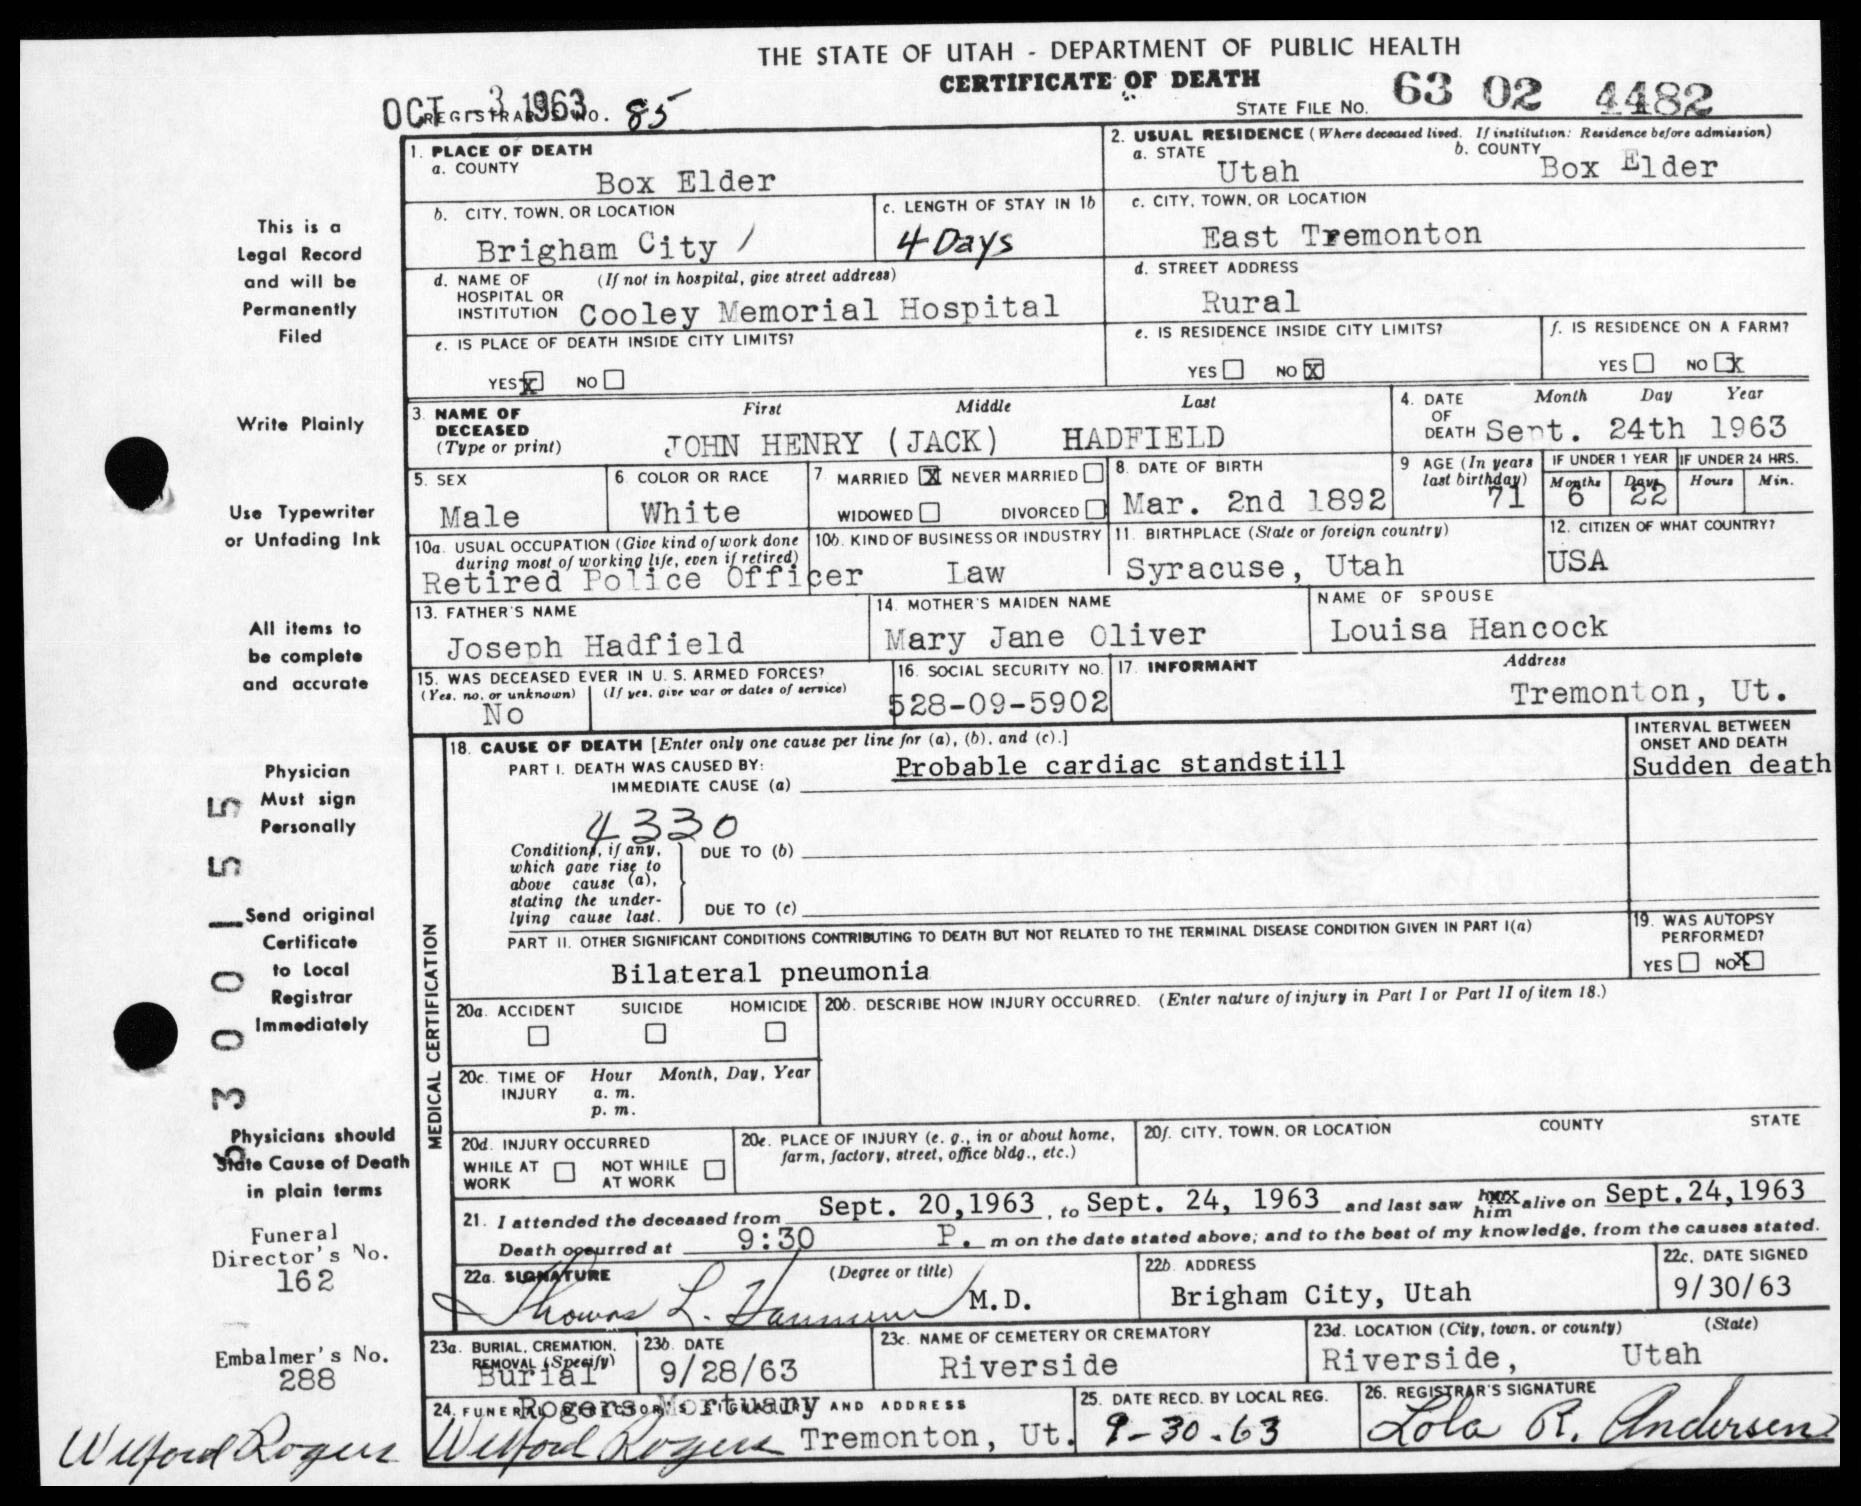 THE STATE OF UTAH - DEPARTMENT OF PUBLIC HEALTH
CERTIFICATE OF DEATH
OCT 3 1963
REGISTRAR'S NO. 85
STATE FILE NO. 63 02 4482
This is a
Legal Record
and will be
Permanently
Filed
Write Plainly
Use Typewriter
or Unfading Ink
All items to
be complete
and accurate
Physician
Must sign
Personally
Send original
Certificate
to Local
Registrar
Immediately
Physicians should
State Cause of Death
in plain terms
Funeral
Director's No.
162
Embalmer's No.
288
Wilford Rogers
1. PLACE OF DEATH
a. COUNTY
Box Elder
2. USUAL RESIDENCE (Where deceased lived. If institution: Residence before admission)
a. STATE Utah
b. COUNTY Box Elder
b. CITY, TOWN, OR LOCATION
Brigham City
c. LENGTH OF STAY IN 1b
4 Days
c. CITY, TOWN, OR LOCATION
East Tremonton
d. NAME OF HOSPITAL OR INSTITUTION (If not in hospital, give street address)
Cooley Memorial Hospital
d. STREET ADDRESS
Rural
e. IS PLACE OF DEATH INSIDE CITY LIMITS?
YES X NO
e. IS RESIDENCE INSIDE CITY LIMITS?
YES NO X
f. IS RESIDENCE ON A FARM?
YES NO X
3. NAME OF DECEASED (Type or print)
First Middle Last
JOHN HENRY (JACK) HADFIELD
4. DATE OF DEATH
Month Day Year
Sept. 24th 1963
5. SEX
Male
6. COLOR OR RACE
White
7. MARRIED X NEVER MARRIED
WIDOWED DIVORCED
8. DATE OF BIRTH
Mar. 2nd 1892
9 AGE (In years last birthday)
71
IF UNDER 1 YEAR
Months Days
6 22
IF UNDER 24 HRS.
Hours Min.
10a. USUAL OCCUPATION (Give kind of work done
during most of working life, even if retired)
Retired Police Officer
10b. KIND OF BUSINESS OR INDUSTRY
Law
11. BIRTHPLACE (State or foreign country)
Syracuse, Utah
12. CITIZEN OF WHAT COUNTRY?
USA
13. FATHER'S NAME
Joseph Hadfield
14. MOTHER'S MAIDEN NAME
Mary Jane Oliver
NAME OF SPOUSE
Louisa Hancock
15. WAS DECEASED EVER IN U. S. ARMED FORCES?
(Yes, no, or unknown) (If yes, give war or dates of service)
No
16. SOCIAL SECURITY NO.
528-09-5902
17. INFORMANT Address
Tremonton, Ut.
MEDICAL CERTIFICATION
18. CAUSE OF DEATH [Enter only one cause per line for (a), (b), and (c).]
PART I. DEATH WAS CAUSED BY:
IMMEDIATE CAUSE (a) Probable cardiac standstill
INTERVAL BETWEEN
ONSET AND DEATH
Sudden death
4330
Conditions, if any,
which gave rise to
above cause (a),
stating the under-
lying cause last.
DUE TO (b)
DUE TO (c)
PART II. OTHER SIGNIFICANT CONDITIONS CONTRIBUTING TO DEATH BUT NOT RELATED TO THE TERMINAL DISEASE CONDITION GIVEN IN PART I(a)
Bilateral pneumonia
19. WAS AUTOPSY
PERFORMED?
YES NO X
20a. ACCIDENT SUICIDE HOMICIDE
20b. DESCRIBE HOW INJURY OCCURRED. (Enter nature of injury in Part I or Part II of item 18.)
20c. TIME OF INJURY
Hour Month, Day, Year
a. m.
p. m.
20d. INJURY OCCURRED
WHILE AT WORK
NOT WHILE AT WORK
20e. PLACE OF INJURY (e. g., in or about home,
farm, factory, street, office bldg., etc.)
20f. CITY, TOWN, OR LOCATION COUNTY STATE
21. I attended the deceased from Sept. 20,1963, to Sept. 24, 1963 and last saw him alive on Sept.24,1963
Death occurred at 9:30 P. m on the date stated above; and to the best of my knowledge, from the causes stated.
22a. SIGNATURE (Degree or title)
Thomas L. M.D.
22b. ADDRESS
Brigham City, Utah
22c. DATE SIGNED
9/30/63
23a. BURIAL, CREMATION,
REMOVAL (Specify)
Burial
23b. DATE
9/28/63
23c. NAME OF CEMETERY OR CREMATORY
Riverside
23d. LOCATION (City, town, or county) (State)
Riverside, Utah
24. FUNERAL DIRECTOR'S SIGNATURE AND ADDRESS
Rogers Mortuary
Wilford Rogers Tremonton, Ut.
25. DATE RECD. BY LOCAL REG.
9-30-63
26. REGISTRAR'S SIGNATURE
Lola R. Andersen
6300155